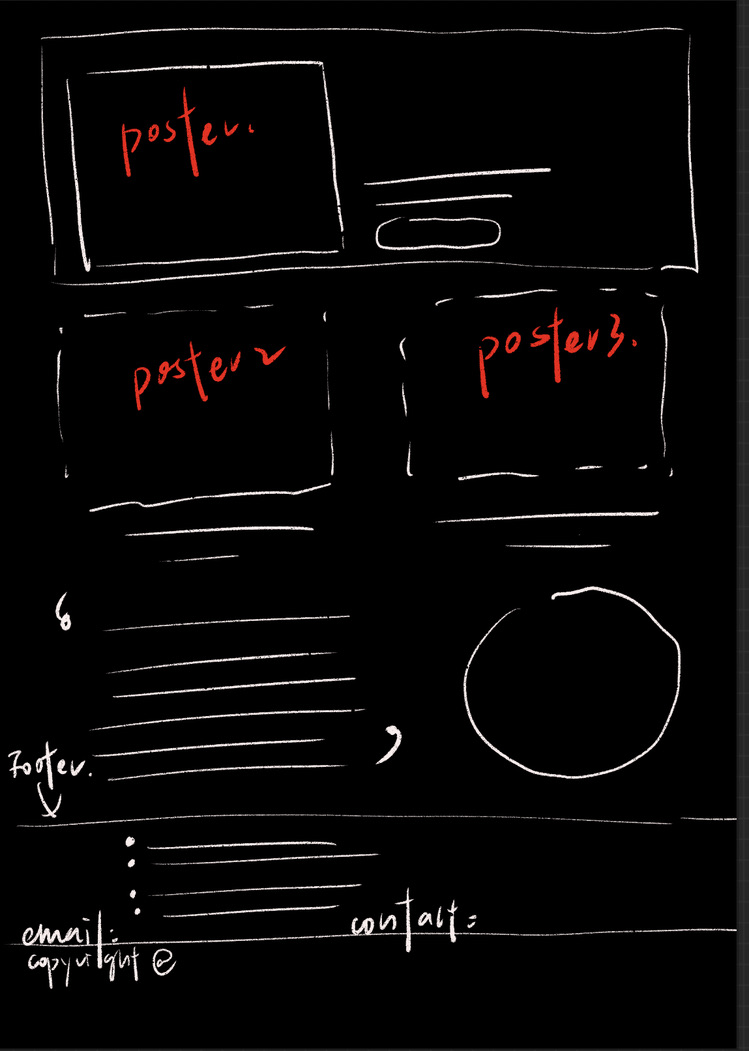 poster.
poster 2
poster 3.
Footer.
email:
contact:
copyright @